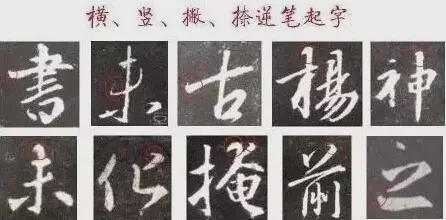 横、竖、撇、捺逆笔起字
書未古楊神
未以掩前之